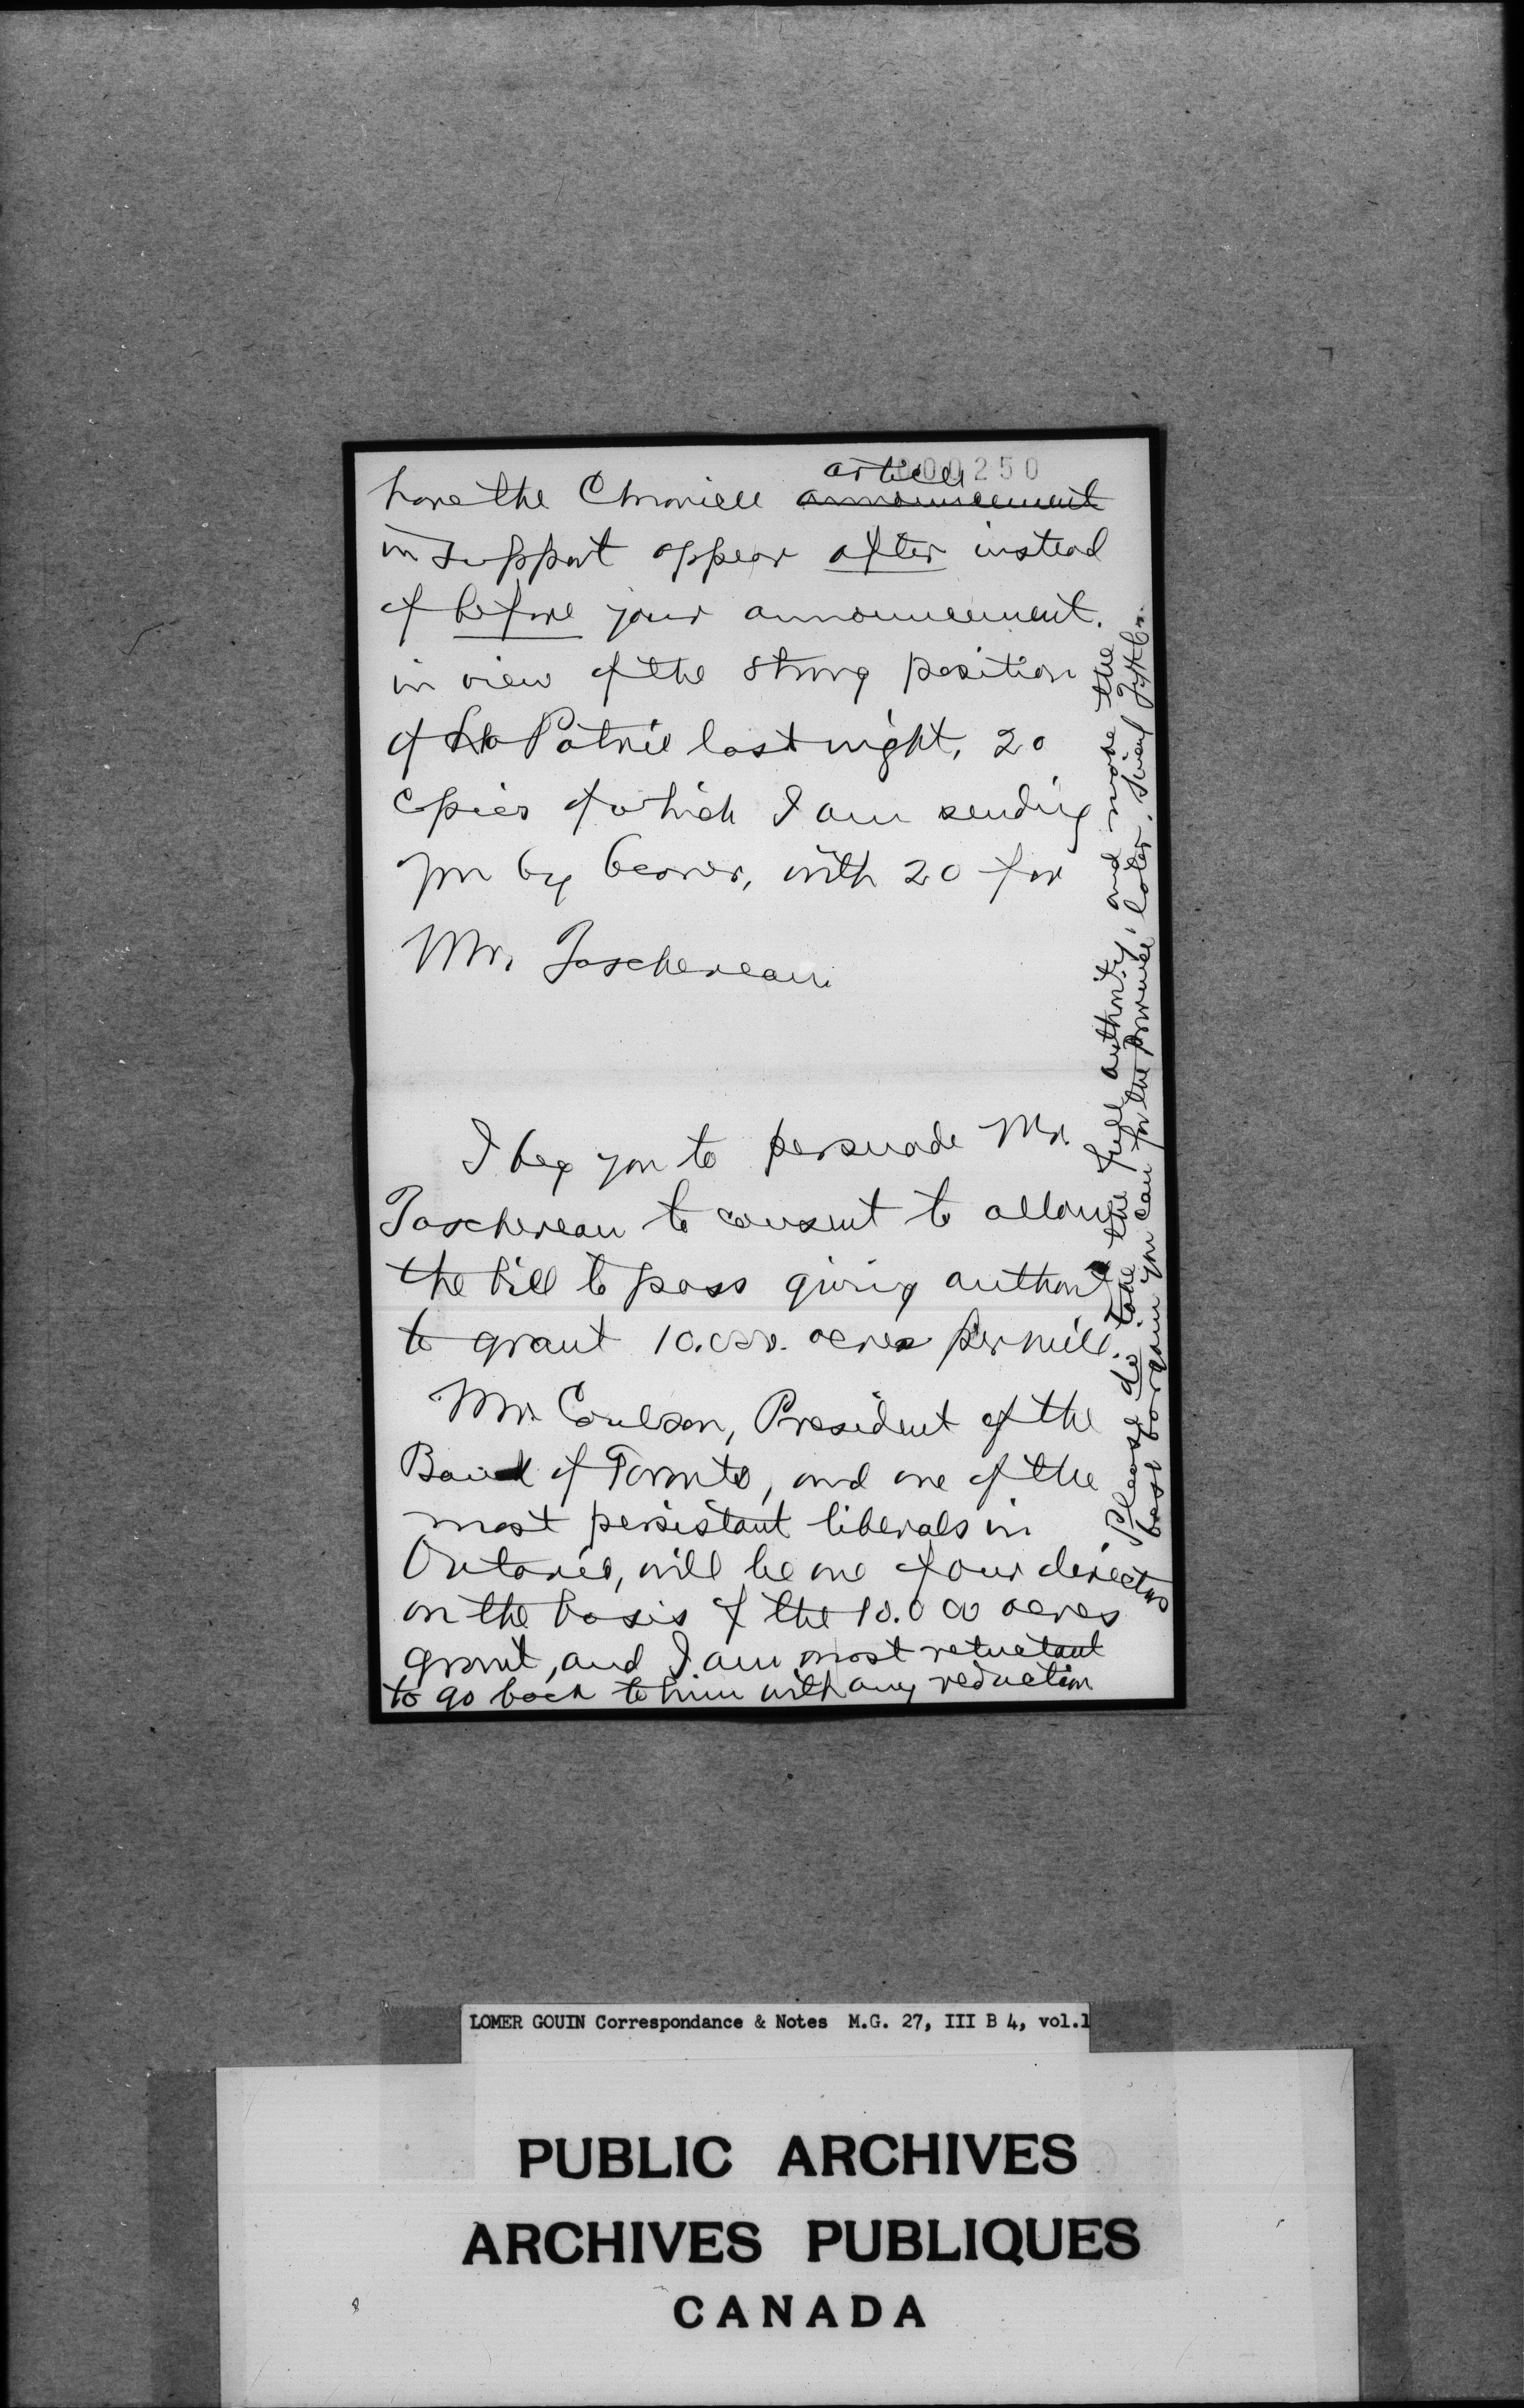 000250
article
have the Chronicle announcement
in support appear after instead
of before your announcement.
in view of the strong position
of La Patrie last night, 20
copies of which I am sending
you by bearer, with 20 for
Mr. Taschereau.
I beg you to persuade Mr.
Taschereau to consent to allow
the bill to pass giving authority
to grant 10.000. acres per mile.
Mr. Coulson, President of the
Bank of Toronto, and one of the
most persistant liberals in
Ontario, will be one of our directors
on the basis of the 10.000 acres
grant, and I am most reluctant
to go back to him with any reduction
Please do take the full authority, and make the
best bargain you can for the Province later.
LOMER GOUIN Correspondance & Notes M.G. 27, III B 4, vol.1
PUBLIC ARCHIVES
ARCHIVES PUBLIQUES
CANADA